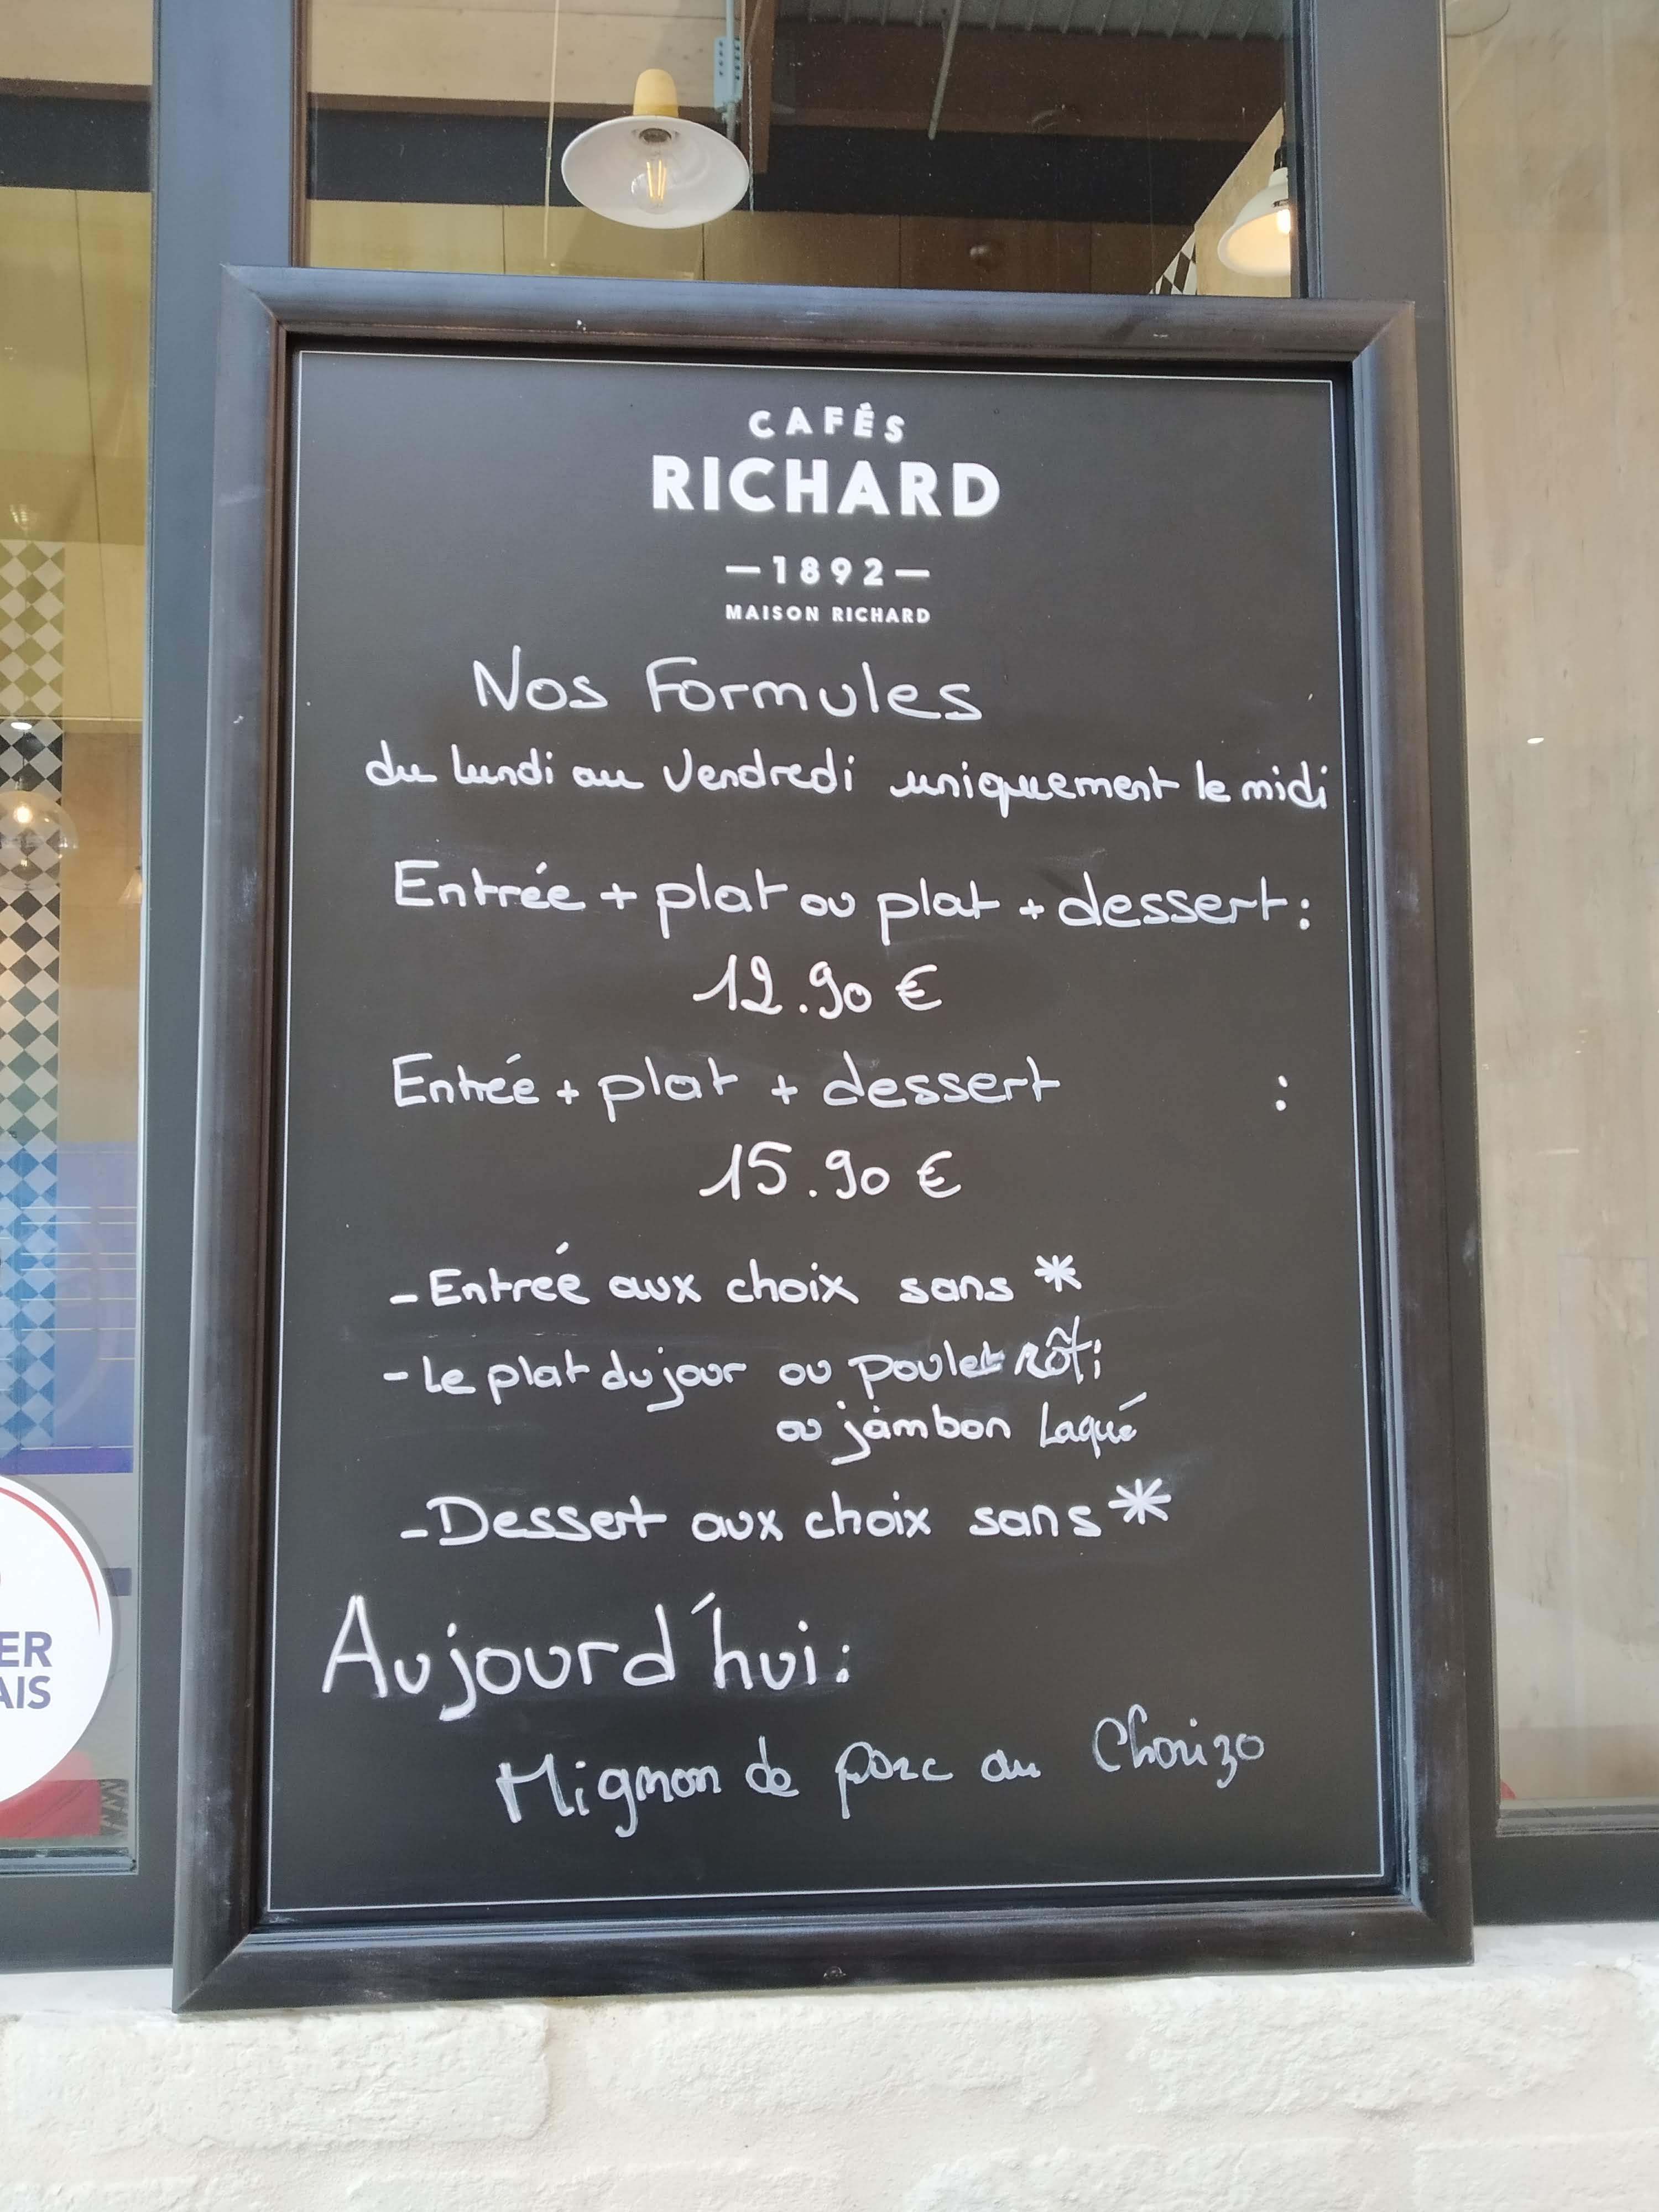 CAFÉS
RICHARD
—1892—
MAISON RICHARD
Nos Formules
du lundi au Vendredi uniquement le midi
Entrée + plat ou plat + dessert :
12.90 €
Entrée + plat + dessert :
15.90 €
- Entreé aux choix sans *
- Le plat du jour ou poulet rôti
ou jambon Laqué
- Dessert aux choix sans *
Aujourd'hui :
Mignon de porc au Chorizo
ER
AIS